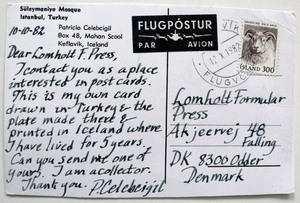 Süleymaniye Mosque
Istanbul, Turkey
Patricia Celebcigil
Box 48, Mahan Scool
Keflavik, Iceland
10-10-82
Dear Lomholt F. Press,
I contact you as a place
interested in postcards.
This is my own card
drawn in Turkey & the
plate made there &
printed in Iceland where
I have lived for 5 years.
Can you send me one of
yours. I am a collector.
Thank you. P. Celebcigil
FLUGPÓSTUR
PAR AVION
ÍSLAND 300
FLUGVÖ
Lomholt Formular
Press
Akjeervej 48
Falling
DK 8300 Odder
Denmark